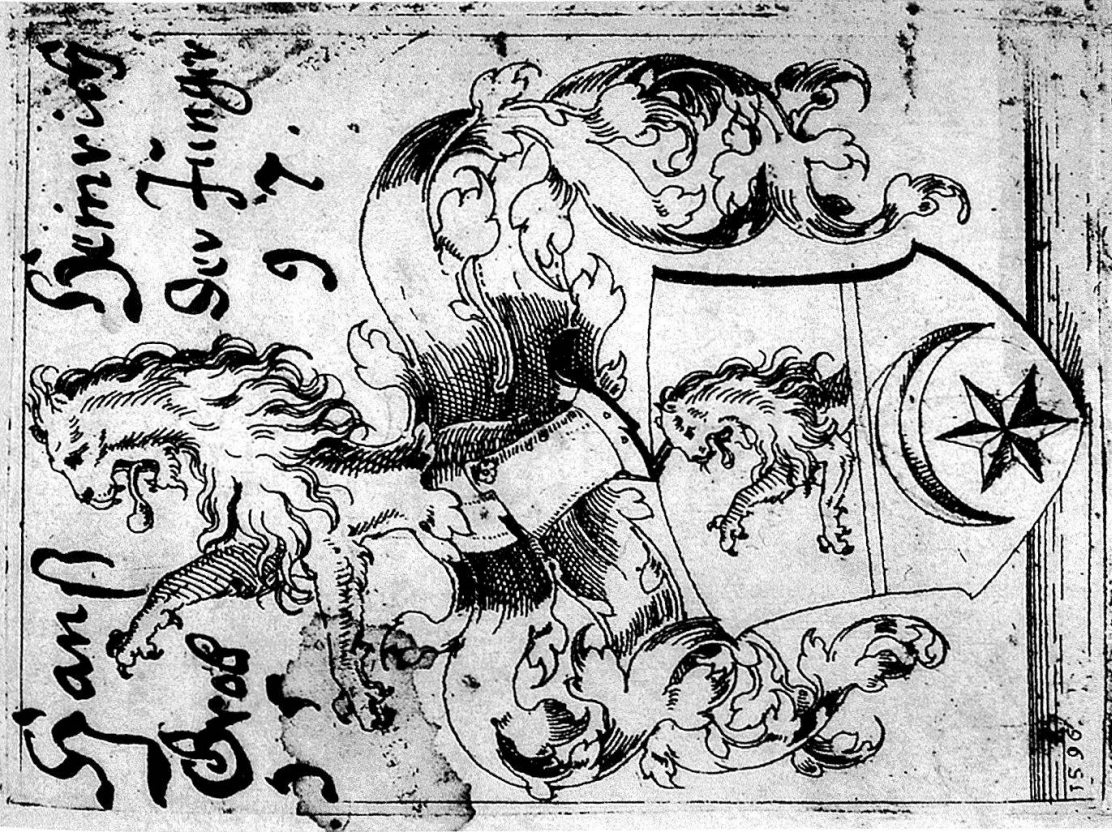 Hanß Heinrich
Grob Der Jünger
1 5 9 7.
1596